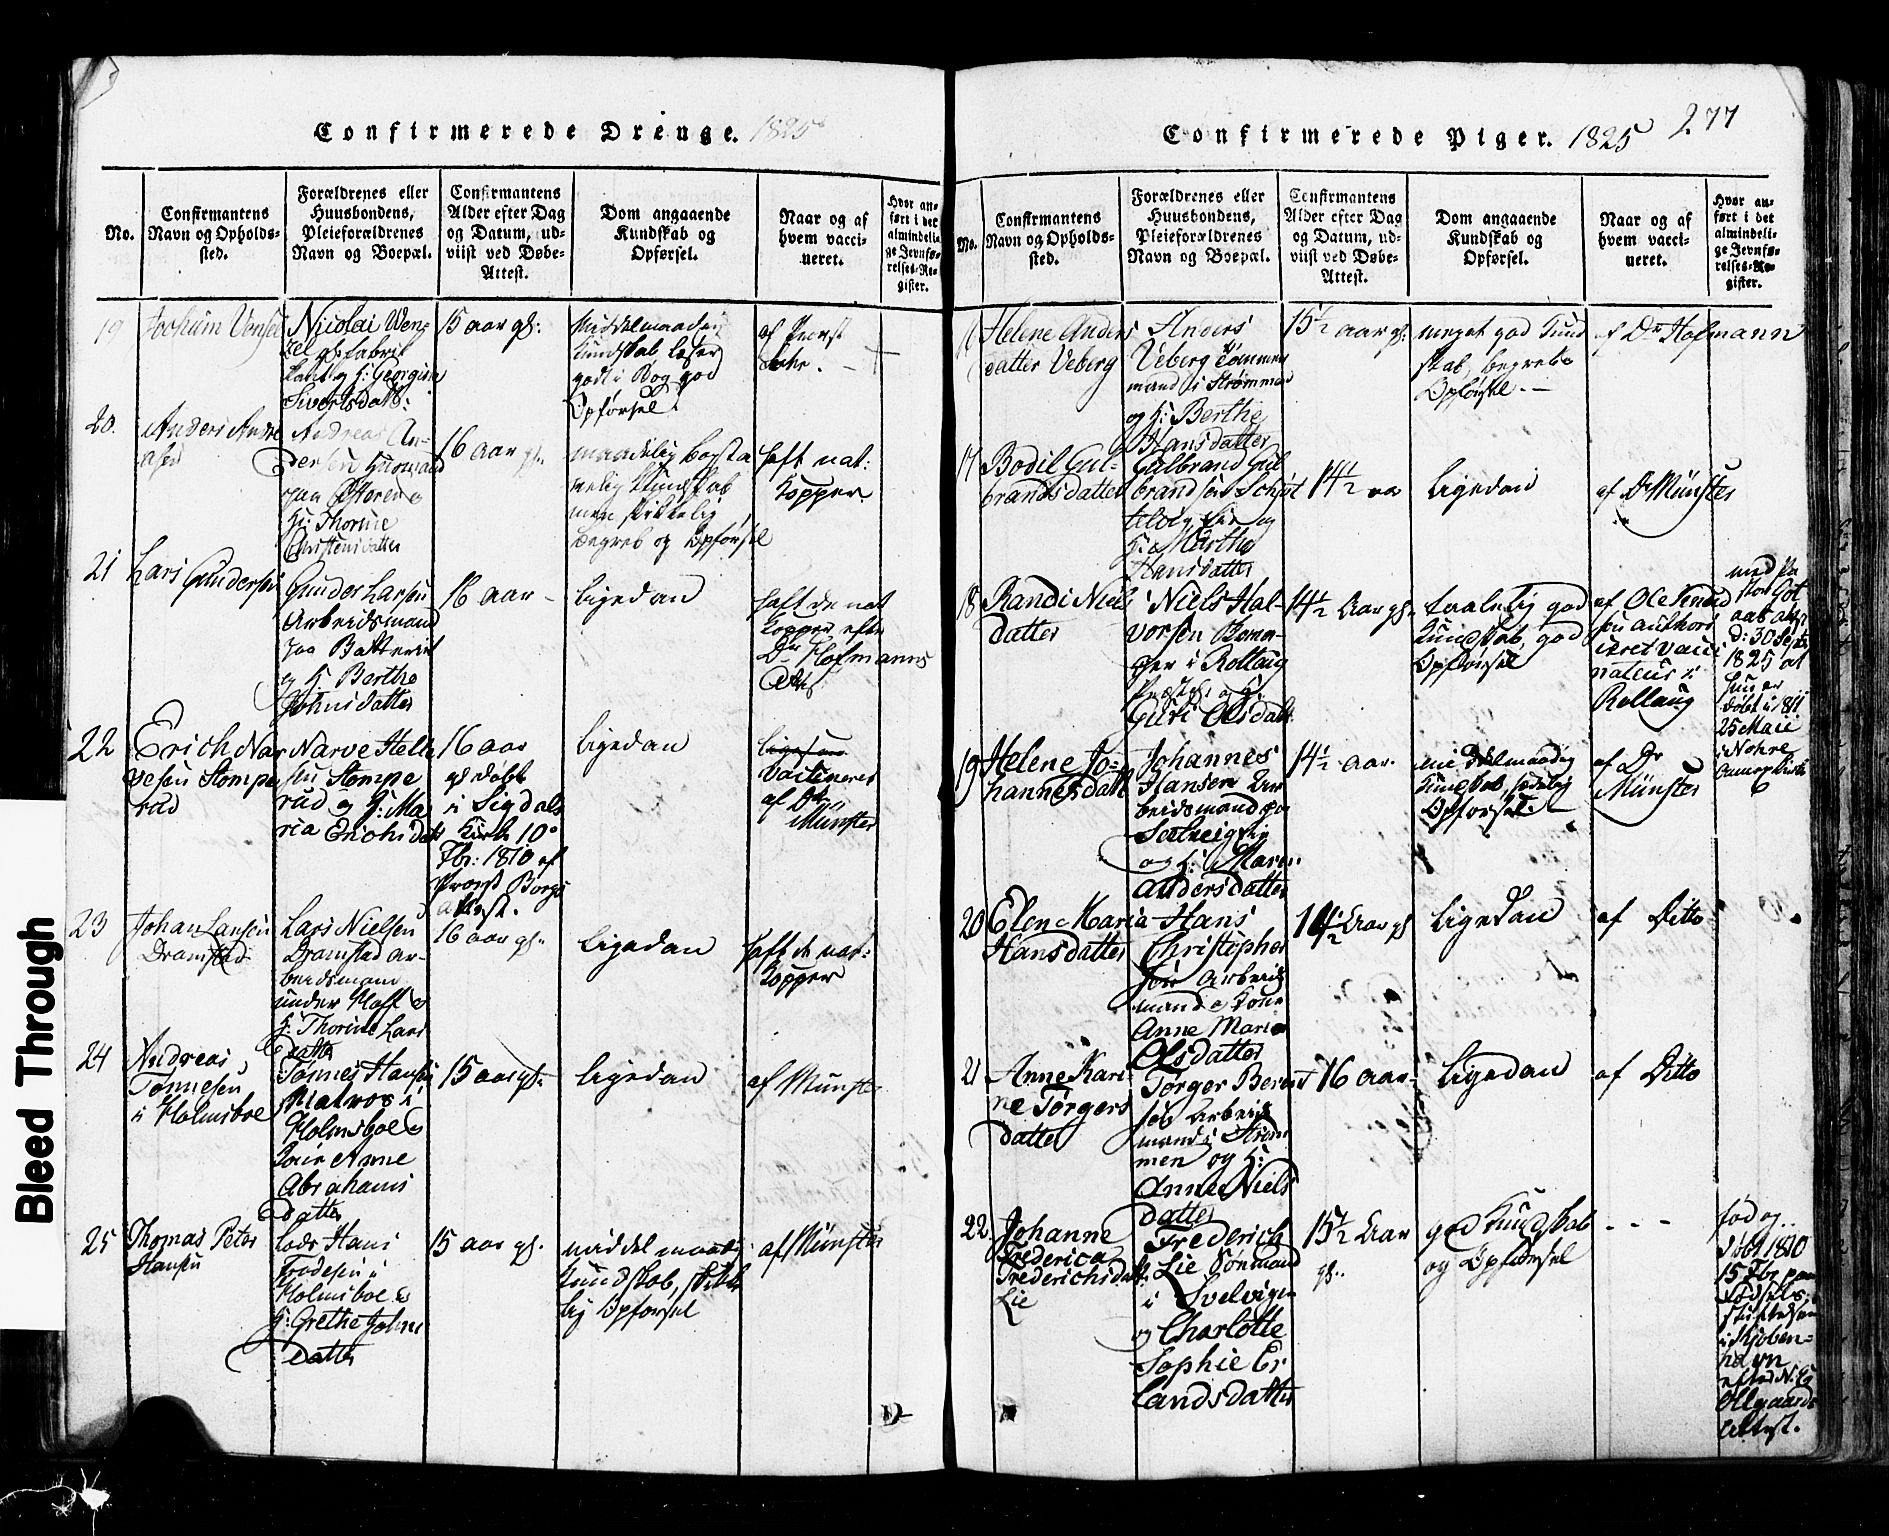 Confirmerede Drenge. 1825
No.
Confirmantens
Navn og Opholds-
sted.
Forældrenes eller
Huusbondens,
Pleieforældrenes
Navn og Boepæl.
Confirmantens
Alder efter Dag
og Datum, ud-
viist ved Døbe-
Attest.
Dom angaaende
Kundskab og
Opførsel.
Naar og af
hvem vacci-
neret.
Hvor an-
ført i det
almindeli-
ge Jevnfø-
relses-Re-
gister.
19
Jochum Vensel
Nicolai Wen-
zel
fabrik
Georgine
Sivertsdatt:
15 aar gl:
Middelmaadig
Kundskab læser
godt i Bog god
Opførsel.
af Provst
20.
Anders Andre
asen
Andreas An-
dersen Husmand
paa
K: Thorine
Christensdatter
16 aar gl.
maadelig bogsta
velig Kundskab
men skikkelig
og Opførsel
haft nat:
Kopper
21
Lars Gundersen
Gunder Larsen
Arbeidsmand
paa Batteriet
og K Berthe
Johnsdatter
16 aar
ligedan
haft de nat
Kopper efter
Dr Hofmanns
Att:
22
Erich Nar
vesen Stompe
rud
Narve Helle
sen Stompe
rud og K: Ma
ria Erichsdatt
16 aar
gl døbt
i Sigdals
Kirke 10
Fbr: 1810 af
Provst
attest.
ligedan
ligesaa
vaccineret
af Dr
Münster
23
Johan Larsen
Dramstad
Lars Nielsen
Dramstad ar-
beidsmand
under
K: Thorine Lars
datter
16 aar gl.
ligedan
haft de nat:
Kopper
24
Andreas
Tønnesen
i Holmsboe
Tønnes Hansen
Matros i
Holmsboe og
Kone Anne
Abrahams
datter
15 aar gl.
ligedan
af Münster
25
Thomas Peter
Hansen
Lods Hans
i
Holmsboe og
K: Grethe Johns
datter
15 aar gl.
middelmaadig
Kundskab, skikke
lig Opførsel
af Münster
Confirmerede Piger. 1825
277
No.
Confirmantens
Navn og Opholds-
sted.
Forældrenes eller
Huusbondens,
Pleieforældrenes
Navn og Boepæl.
Confirmantens
Alder efter Dag
og Datum, ud-
viist ved Døbe-
Attest.
Dom angaaende
Kundskab og
Opførsel.
Naar og af
hvem vacci-
neret.
Hvor an-
ført i det
almindeli-
ge Jevnfø-
relses-Re-
gister.
16
Helene Anders
datter Veberg
Anders
Veberg Tømmer
mand i Strømmen
og K: Berthe
Hansdatter
15½ aar gl.
meget god Kund
skab,
Opførsel.
af Dr Hofmann
17
Bodil Gul-
brandsdatter
Gulbrand Gul
brandsen
og
K: Marthe
Hansdatter
14½ aar
ligedan
af Dr Münster
18
Randi Niels
datter
Niels Hal-
vorsen
i Rollaug
Præstegl og K:
Guri Olsdatt
14½ Aar gl.
taalelig god
Kundskab, god
Opførsel
af Ole Knud
sen authori
seret vacci
nateur i
Rollaug
med Pa
stor
d: 30 Septr
1825 at
hun er
døbt i 1811
25 Maii
i Nohre
19
Helene Jo-
hannesdatt
Johannes
Hansen Ar
beidsmand paa
og K: Maren
Andersdatter
14½ aar.
middelmaadig
Kundskab,
Opførsel.
af Dr
Münster
20
Elen Maria
Hansdatter
Hans
Christopher
sen Arbeids
mand og Kone
Anne Marie
Olsdatter
14½ Aar gl
ligedan
af Ditto
21
Anne Kari-
ne Tørgers
datter
Tørger Berent
sen Arbeids
mand i Strøm
men og K:
Anne Niels
datter
16 aar
ligedan
af Ditto
22.
Johanne
Frederica
Frederichsdatt
Lie
Frederich
Lie Sømand
i Svelvigen
og Charlotte
Sophie Er
landsdatter
15½ Aar
gl..
god Kundskab
og Opførsel
- - -
fød og
døbt 1810
15 Fbr paa
Fødsels
stiftelsen
i Kjøben-
havn
efter
Attest.
Bleed Through